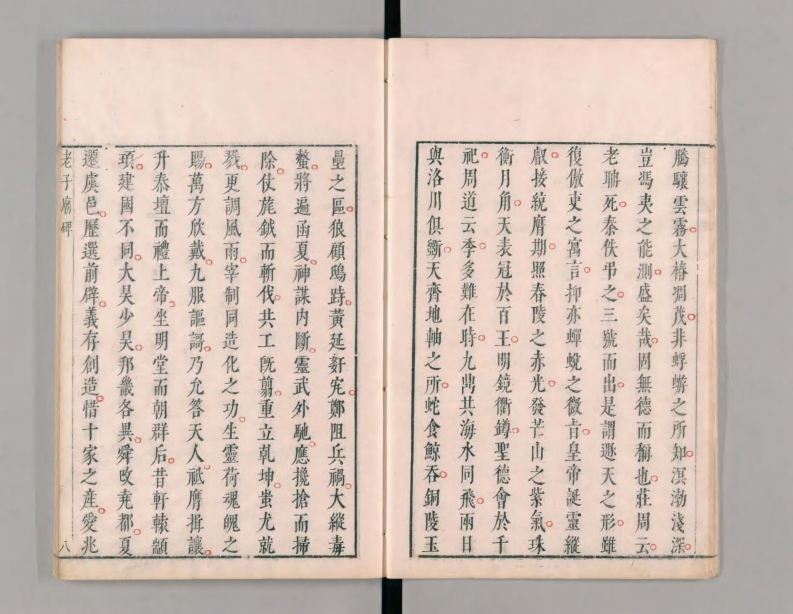 騰驤雲霧大椿凋茂非蜉蝣之所知溟渤淺深
豈馮夷之能測盛矣哉固無德而稱也莊周云
老聃死秦佚弔之三號而出是謂遯天之形雖
復傲吏之寓言抑亦蟬蛻之微旨皇帝誕靈縱
叡接統膺期照春陵之赤光發芒山之紫氣珠
衡月角天表冠於百王明鏡衢罇聖德會於千
祀周道云季多難在時九鼎共海水同飛兩日
與洛川俱鬭天齊地軸之所蛇食鯨吞銅陵玉
壘之區狼顧鴟跱黃延姧宄鄭阻兵禍大縱毒
螫將遍函夏神謀內斷靈武外馳應攙搶而掃
除仗旄鉞而斬伐共工旣翦重立乾坤蚩尤就
戮更調風雨宰制同造化之功生靈荷魂魄之
賜萬方欣戴九服謳謌乃允答天人祗膺揖讓
升泰壇而禮上帝坐明堂而朝群后昔軒轅顓
頊建國不同大昊少昊邦畿各異舜改堯都夏
遷虞邑歷選前辟義存創造惜十家之產愛兆
老子廟碑 八